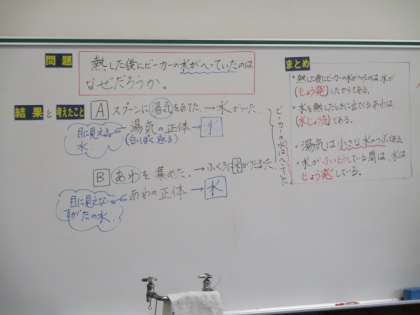 問題
熱した後にビーカーの水がへっていたのは
なぜだろうか。
結果と考えたこと
A スプーンに湯気をあてた。→水がついた。
目に見える
水
湯気の正体→水
(白く見える)
B あわを集めた。→ふくろに水がたまった。
目に見えない
すがたの水
あわの正体→水
ビーカーの水はへっていた
まとめ
・熱した後にビーカーの水がへったのは、水が
(じょう発)したからである。
・水を熱したときに出てくるあわは
(水じょう気)である。
・湯気は小さな水のつぶである。
・水がふっとうしている間は、水は
じょう発している。